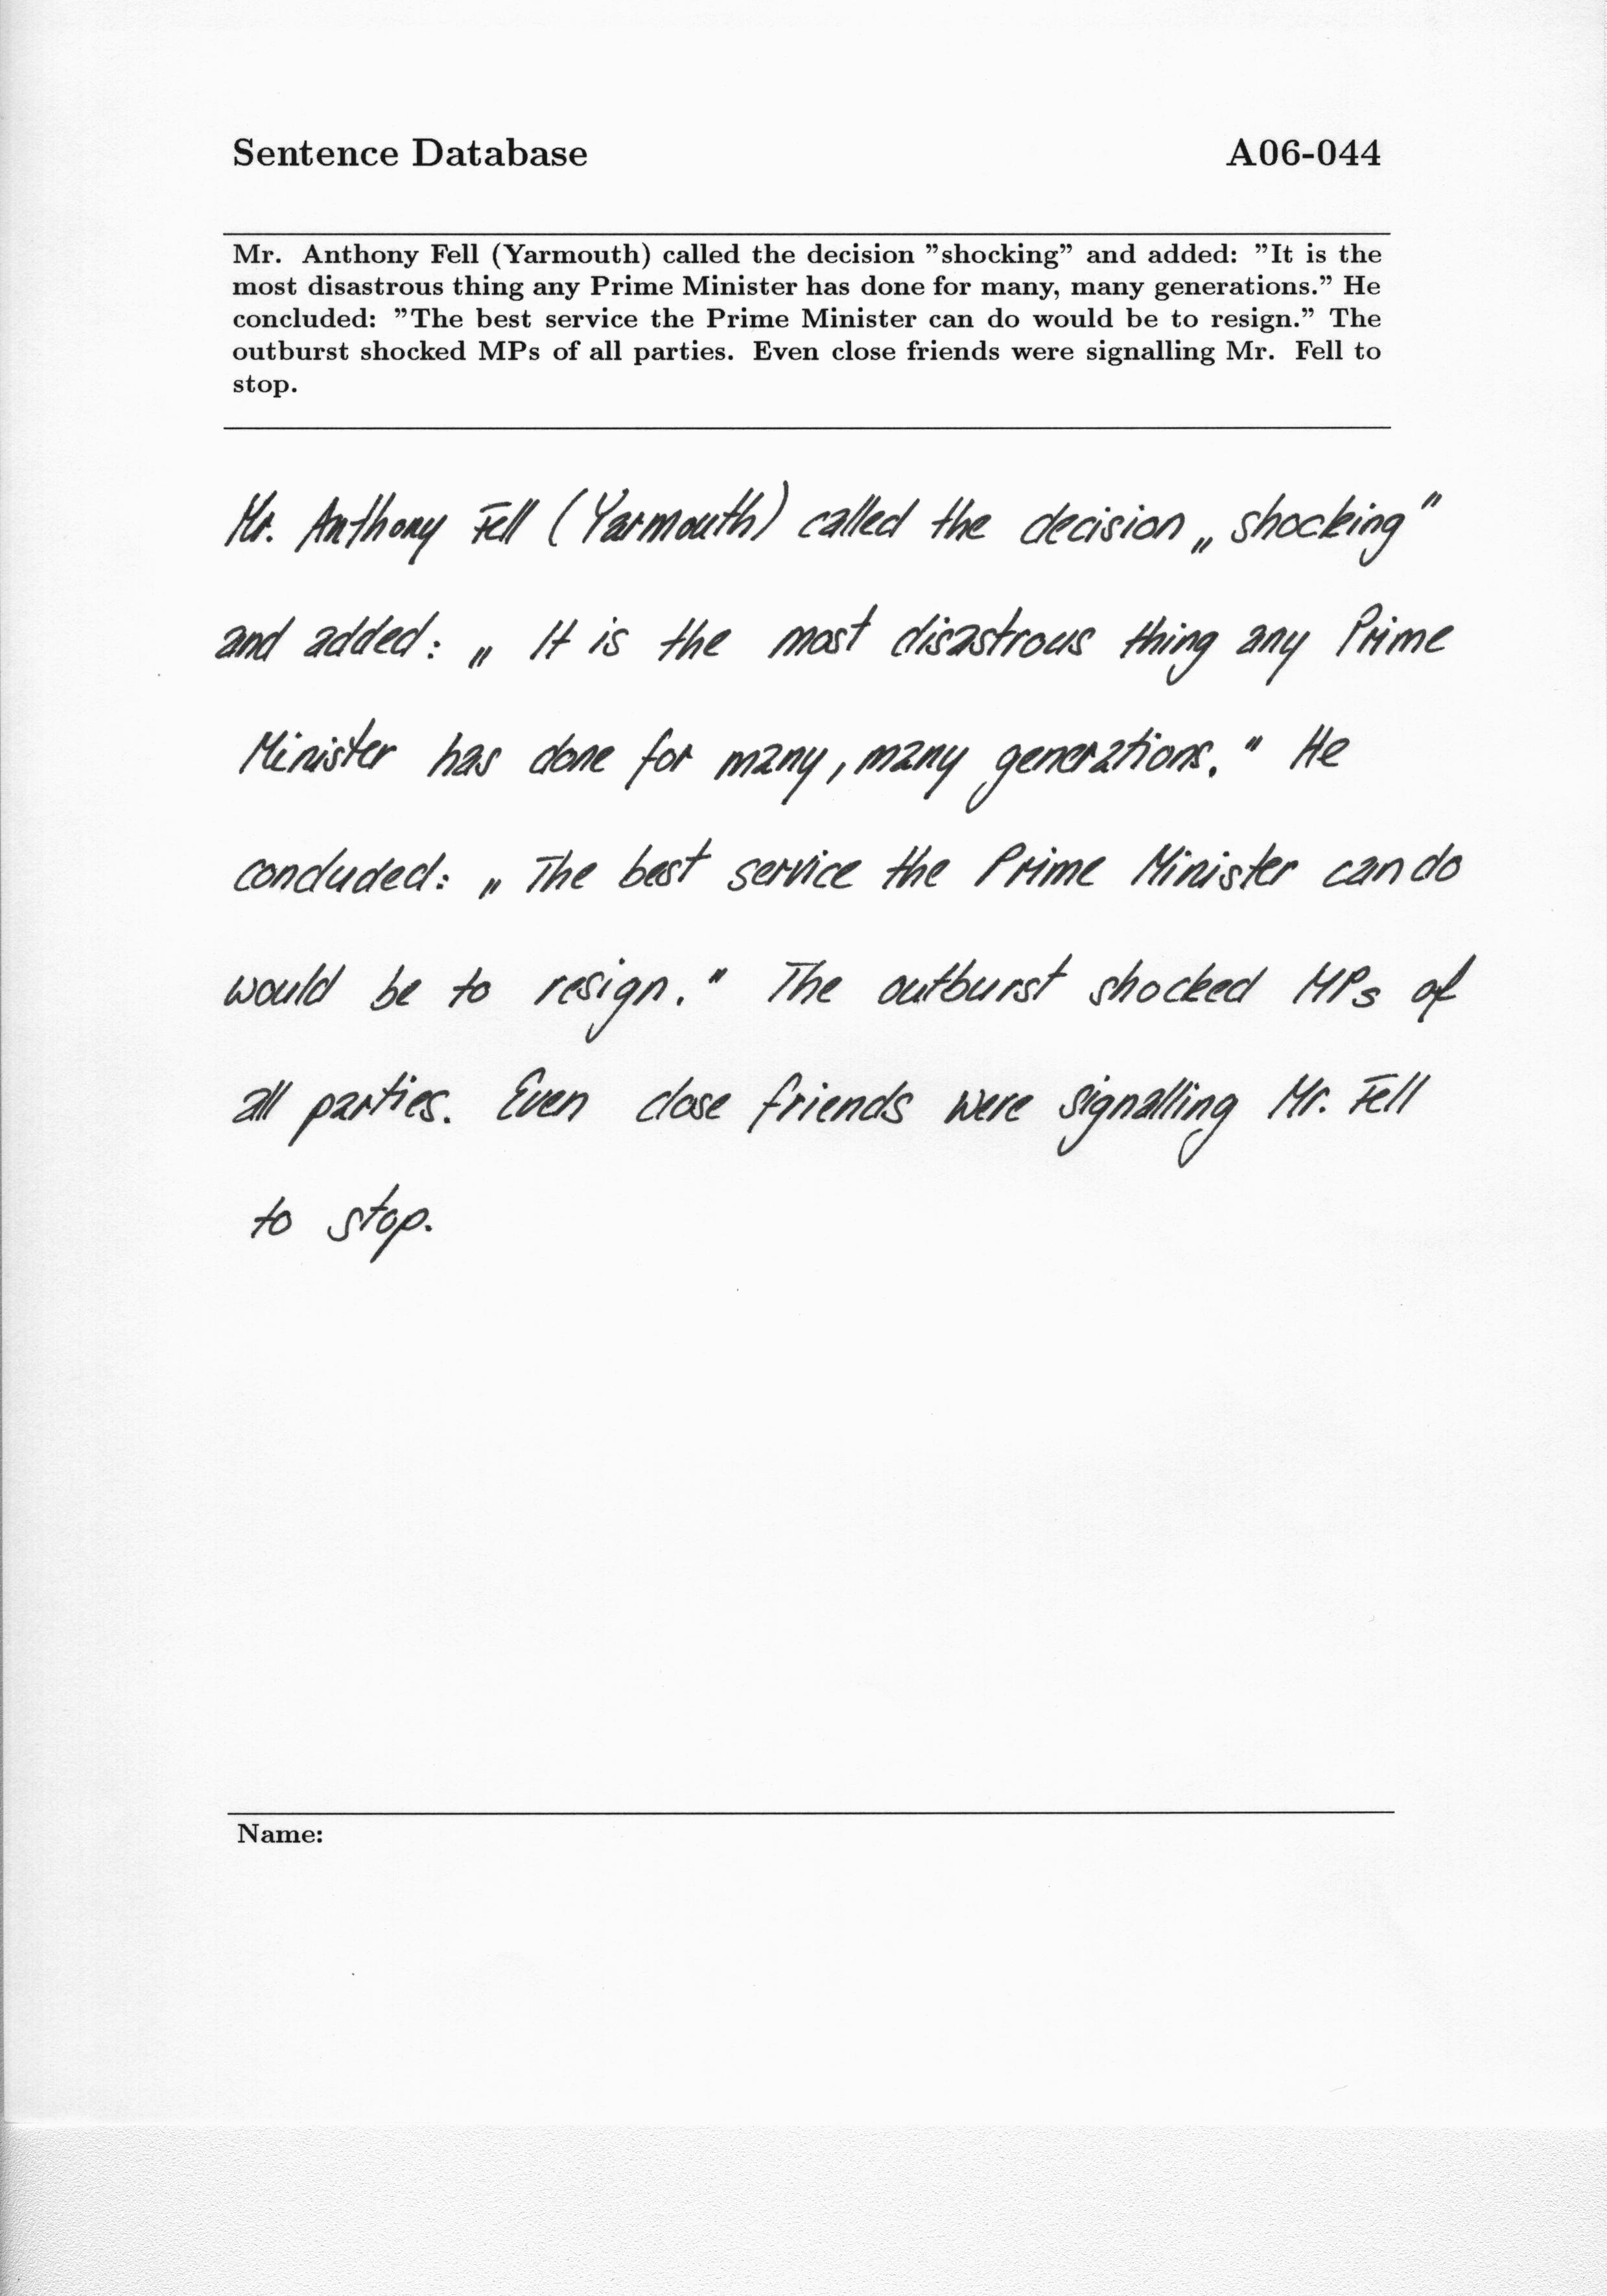 Sentence Database A06-044
Mr. Anthony Fell (Yarmouth) called the decision ”shocking” and added: ”It is the
most disastrous thing any Prime Minister has done for many, many generations.” He
concluded: ”The best service the Prime Minister can do would be to resign.” The
outburst shocked MPs of all parties. Even close friends were signalling Mr. Fell to
stop.
Mr. Anthony Fell (Yarmouth) called the decision „shocking“
and added: „ It is the most disastrous thing any Prime
Minister has done for many, many generations.“ He
concluded: „ The best service the Prime Minister can do
would be to resign.“ The outburst shocked MPs of
all parties. Even close friends were signalling Mr. Fell
to stop.
Name: